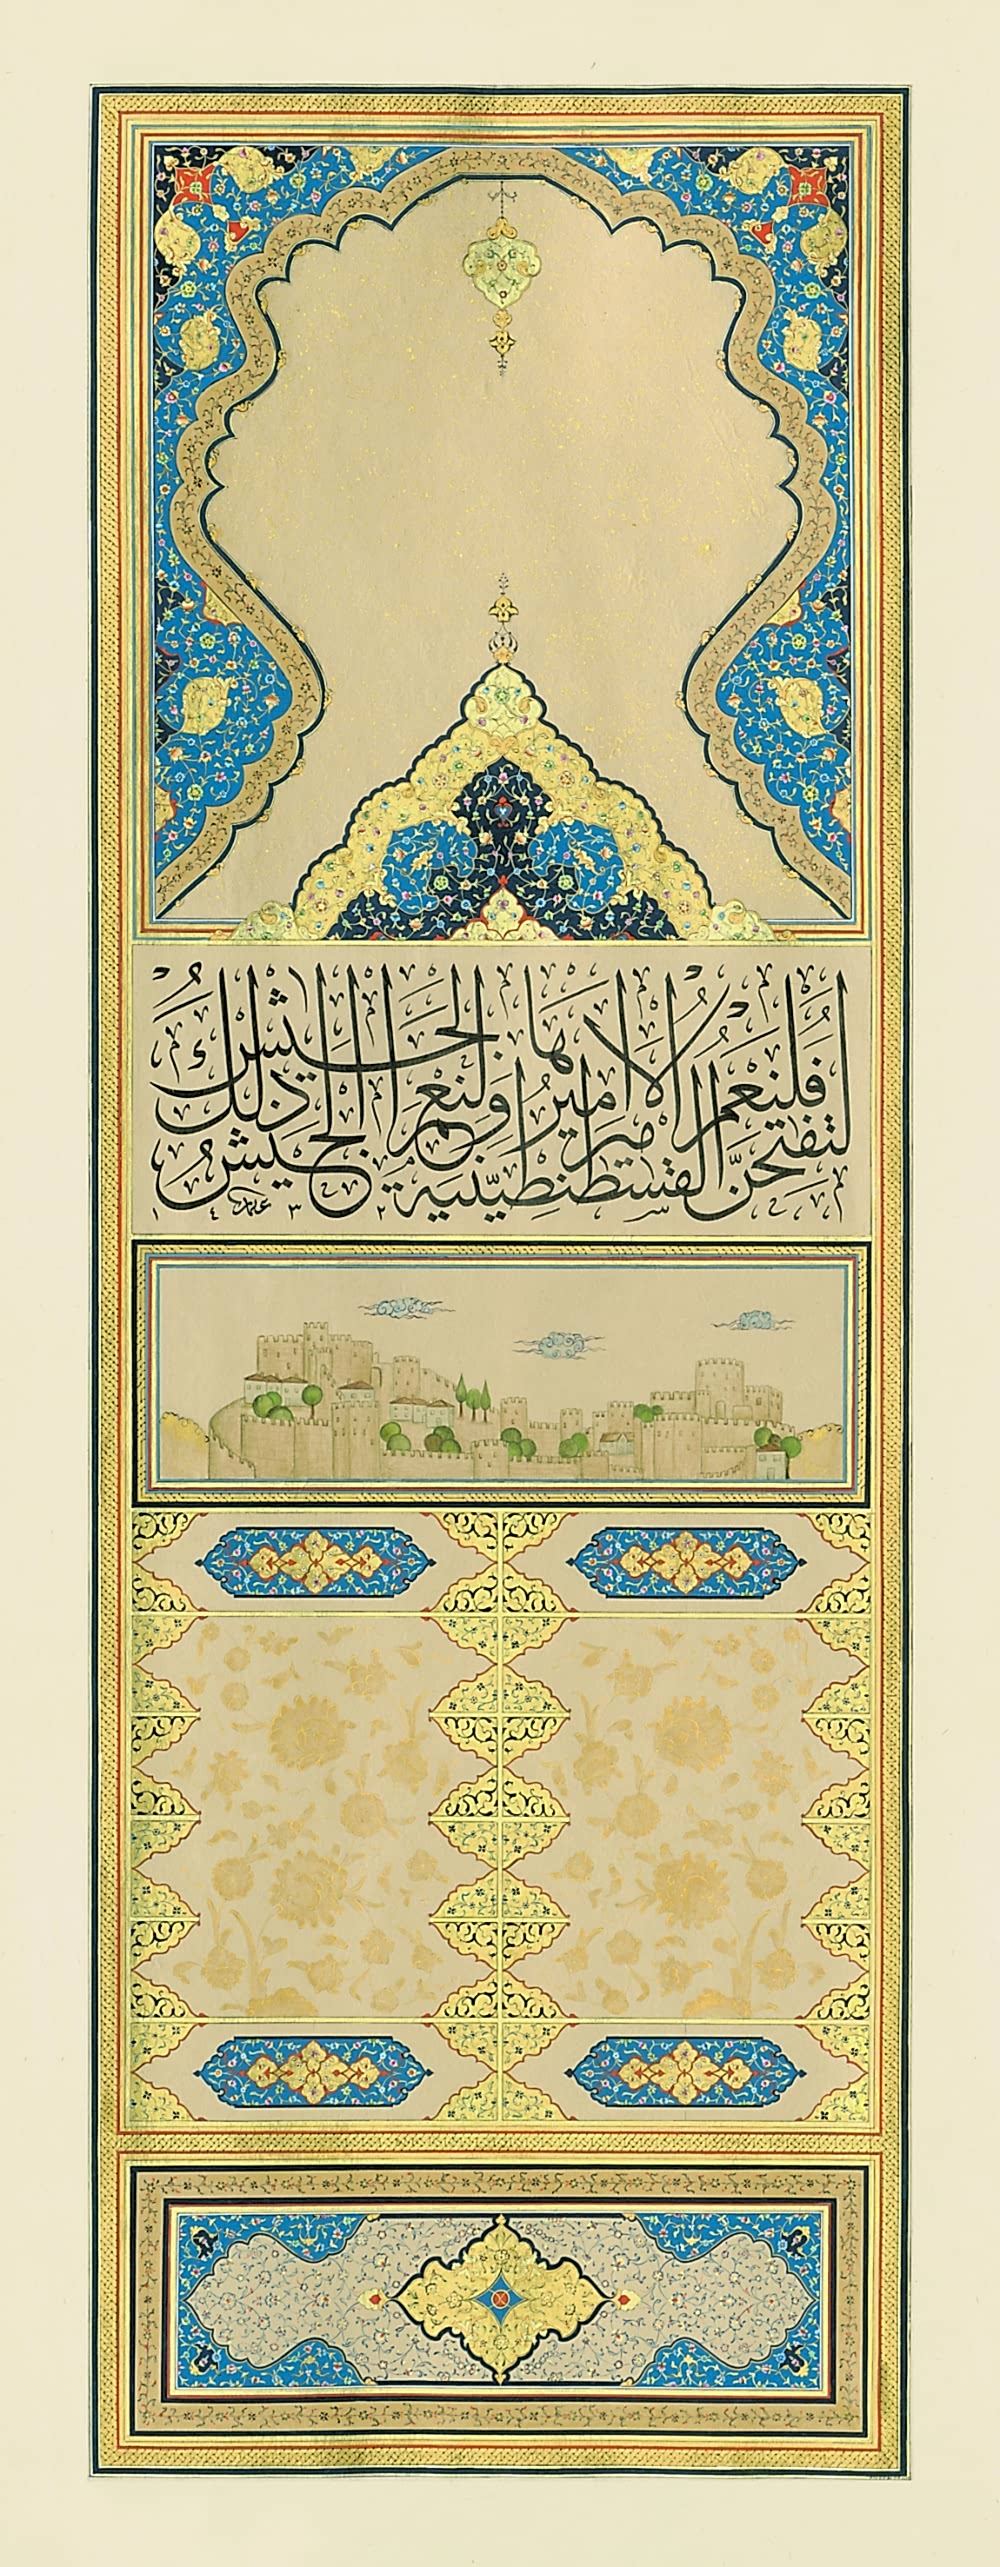 لتفتحنّ القسطنطينيّة فلنعم الامير اميرها ولنعم الجيش ذلك الجيش
١٤٣٢